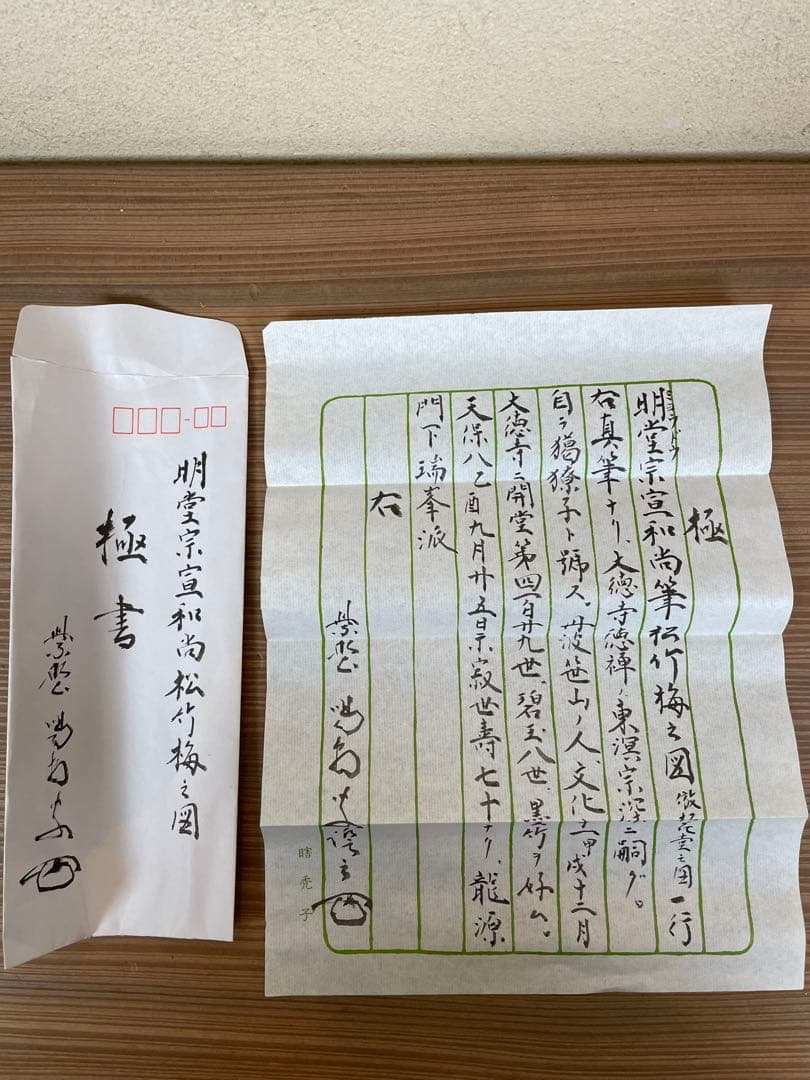 明堂宗宣和尚松竹梅之図
極書
紫野
極
ミョウドウ
明堂宗宣和尚筆松竹梅之図 一行
右真筆ナリ、大徳寺徳禅ノ東溟宗深ニ嗣グ。
自ラ獦獠子ト號ス、丹波笹山ノ人、文化十一甲戌十二月
大徳寺ニ開堂第四百廿九世、碧玉八世、墨竹ヲ好ム。
天保八乙酉九月廿五日示寂世壽七十ナリ、龍源
門下瑞峯派
右
紫野
瞎禿子